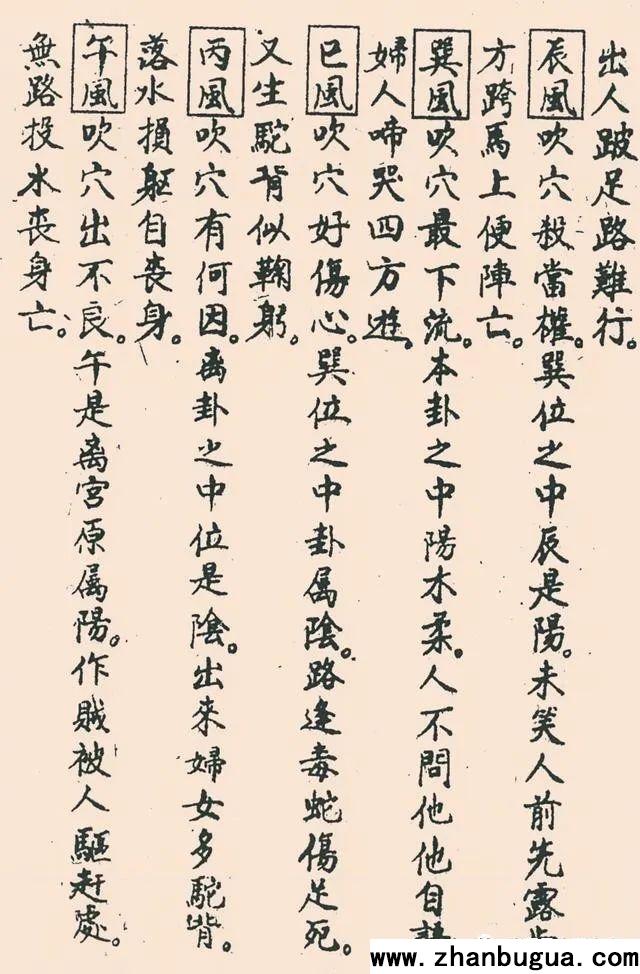 出人跛足路難行。
辰風吹穴殺當權。巽位之中辰是陽。未笑人前先露
方跨馬上便陣亡。
巽風吹穴最下流。本卦之中陽木柔。人不問他他自
婦人啼哭四方遊。
巳風吹穴好傷心。巽位之中卦属陰。路逢毒蛇傷足死。
又生駝背似鞠躬。
丙風吹穴有何因。离卦之中位是陰。出來婦女多駝背。
落水損躯自丧身。
午風吹穴出不良。午是离宮原属陽。作賊被人驅赶處。
無路投水丧身亡。
www.zhanbugua.com